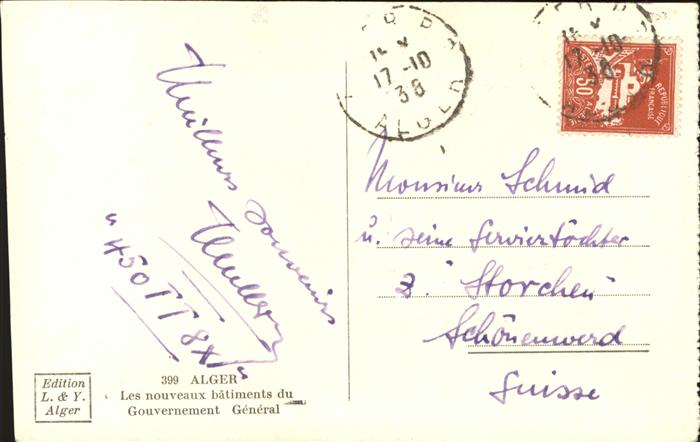 Meilleurs souvenirs
Müller
"450 TT 8x"
Edition
L. & Y.
Alger
399 ALGER
Les nouveaux bâtiments du
Gouvernement Général
17-10
38
ALGER
REPUBLIQUE
FRANCAISE
50
Monsieur Schmid
u. seine Serviertöchter
z. "Storchen"
Schönenwerd
Suisse